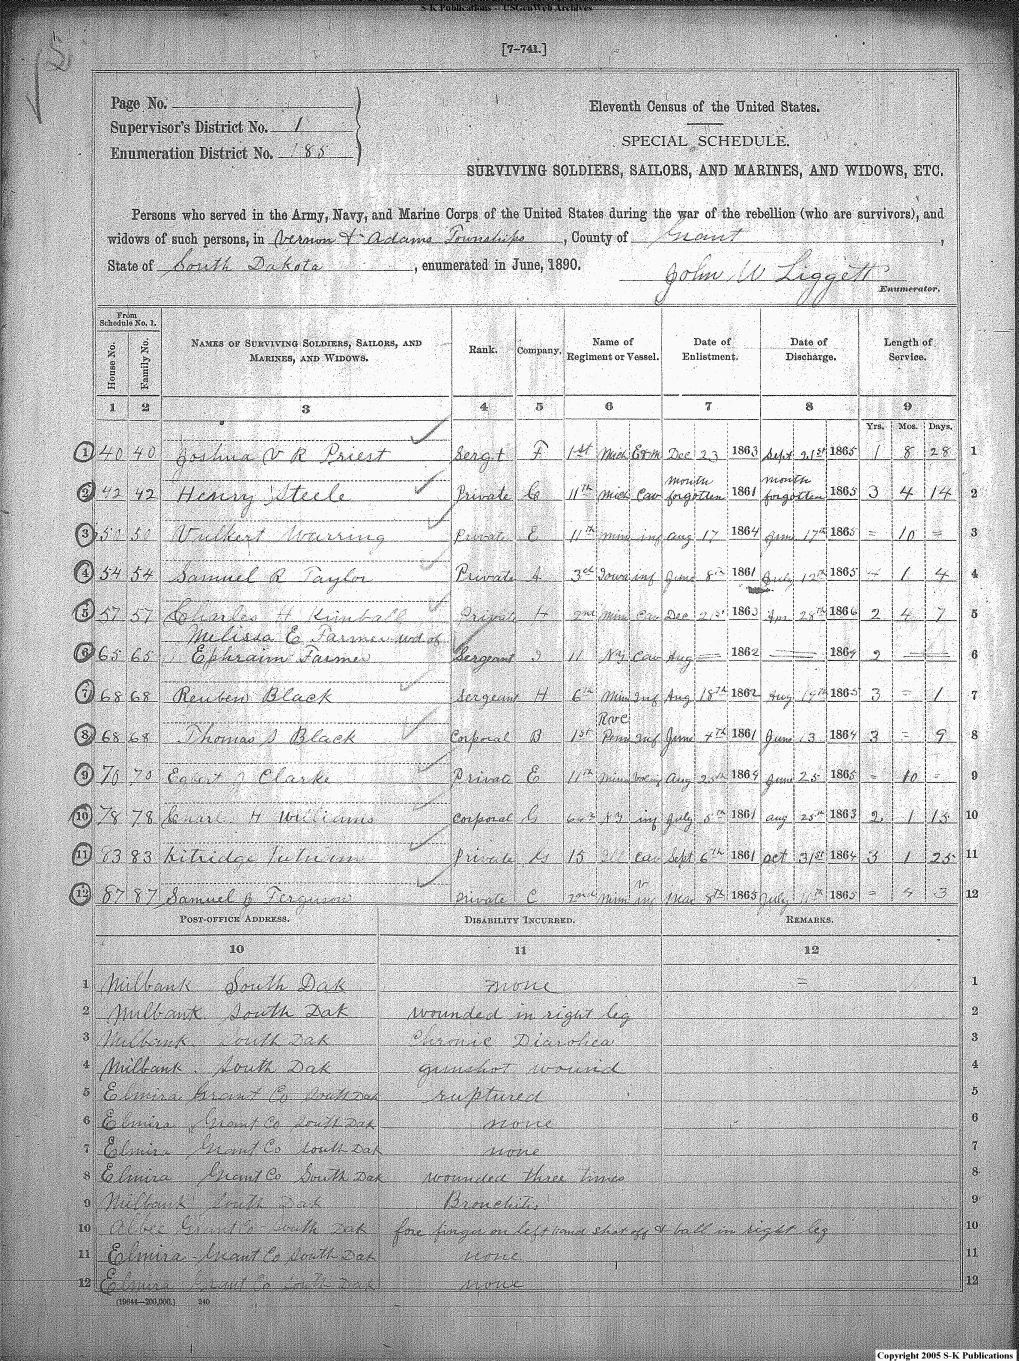 S-K Publications - USGenWeb Archives
[7-741.]
Page No.
Supervisor's District No. 1
Enumeration District No. 185
Eleventh Census of the United States.
SPECIAL SCHEDULE.
SURVIVING SOLDIERS, SAILORS, AND MARINES, AND WIDOWS, ETC.
Persons who served in the Army, Navy, and Marine Corps of the United States during the war of the rebellion (who are survivors), and
widows of such persons, in Vernon & Adams Townships, County of Grant,
State of South Dakota, enumerated in June, 1890.
John W Liggett
Enumerator.
From Schedule No. 1.
House No. Family No. NAMES OF SURVIVING SOLDIERS, SAILORS, AND MARINES, AND WIDOWS. Rank. Company. Name of Regiment or Vessel. Date of Enlistment. Date of Discharge. Length of Service.
1 2 3 4 5 6 7 8 9
Yrs. Mos. Days.
1 40 40 Joshua V R Priest Sergt F 1st Mich Dec 23 1863 Sept 21st 1865 1 8 28 1
2 42 42 Henry Steele Private C 11th Mich Cav month forgotten 1861 month forgotten 1865 3 4 14 2
3 50 50 Vulkert Warring Private E 11th Minn inf Aug 17 1864 June 17th 1865 = 10 = 3
4 54 54 Samuel R Taylor Private A 3rd Iowa inf June 8th 1861 July 12th 1865 4 1 4 4
5 57 57 Charles H Kimball Private H 2nd Minn Cav Dec 21st 1863 Apr 28th 1866 2 4 7 5
Melissa E Farmer wid of
6 65 65 Ephraim Farmer Sergeant I 11 NY Cav Aug 1862 1864 2 6
7 68 68 Reuben Black Sergeant H 6th Minn Inf Aug 18th 1862 Aug 19th 1865 3 = 1 7
8 68 68 Thomas S Black Corporal B 1st Penn Inf June 4th 1861 June 13 1864 3 = 9 8
9 70 70 Egbert J Clarke Private E 11th Minn Aug 25th 1864 June 25 1865 = 10 = 9
10 78 78 H Williams Corporal G NY inf July 5th 1861 aug 25th 1863 2 1 15 10
11 83 83 Kitridge Private 15 Ill Cav Sept 6th 1861 oct 31st 1864 3 1 25 11
12 87 87 Samuel B Ferguson Private C 2nd Minn inf Mar 8th 1865 July 11th 1865 = 4 3 12
POST-OFFICE ADDRESS. DISABILITY INCURRED. REMARKS.
10 11 12
1 Milbank South Dak none = 1
2 Milbank South Dak wounded in right leg 2
3 Milbank South Dak Chronic Diarohea 3
4 Milbank South Dak gunshot wound 4
5 Elmira Grant Co South Dak ruptured 5
6 Elmira Grant Co South Dak none 6
7 Elmira Grant Co South Dak none 7
8 Elmira Grant Co South Dak wounded three times 8
9 Milbank South Dak Bronchitis 9
10 Albee Grant Co South Dak fore finger on left hand shot off & ball in right leg 10
11 Elmira Grant Co South Dak none 11
12 Elmira Grant Co South Dak none 12
(19644-200,000.) 240
Copyright 2005 S-K Publications